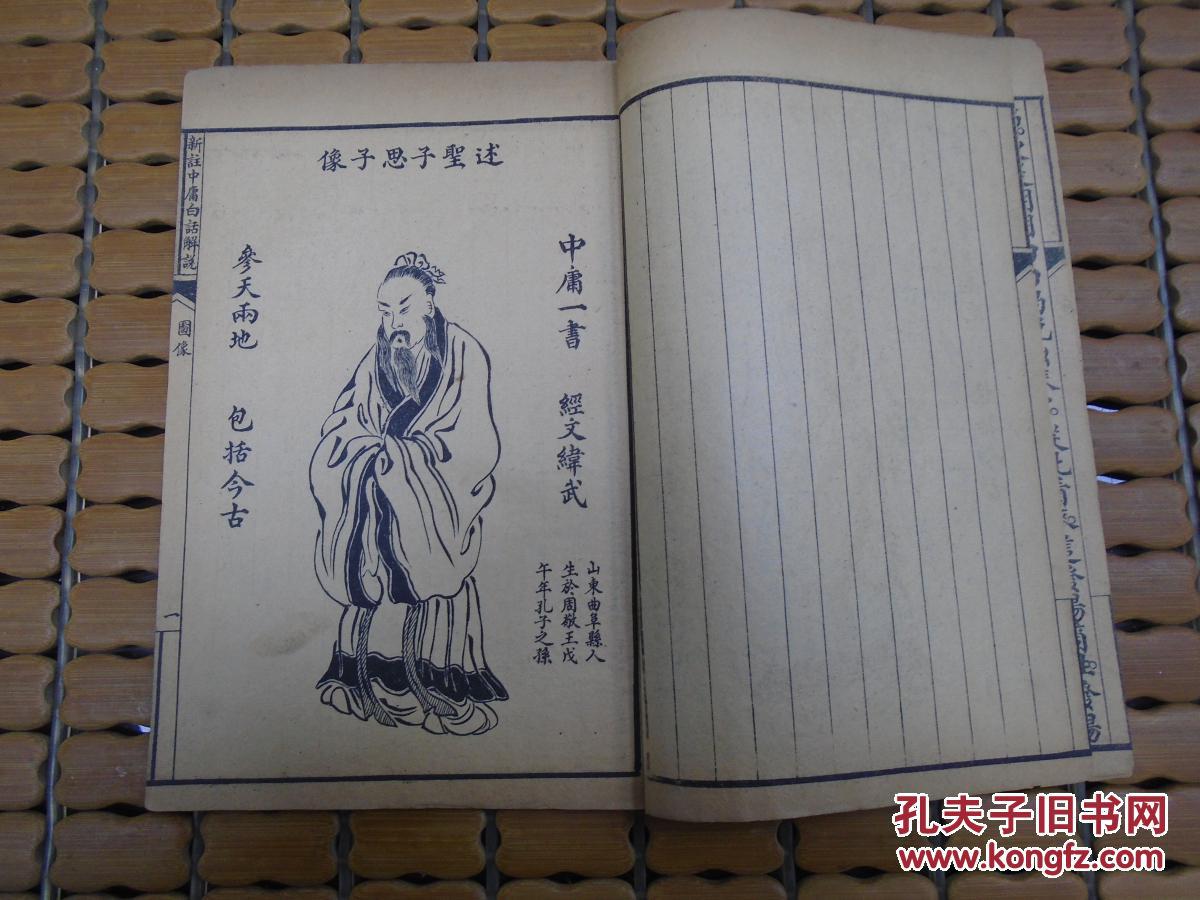 述聖子思子像
中庸一書 經文緯武
山東曲阜縣人
生於周敬王戊
午年孔子之孫
參天兩地 包括今古
新註中庸白話解説
圖像
一
孔夫子旧书网
www.kongfz.com